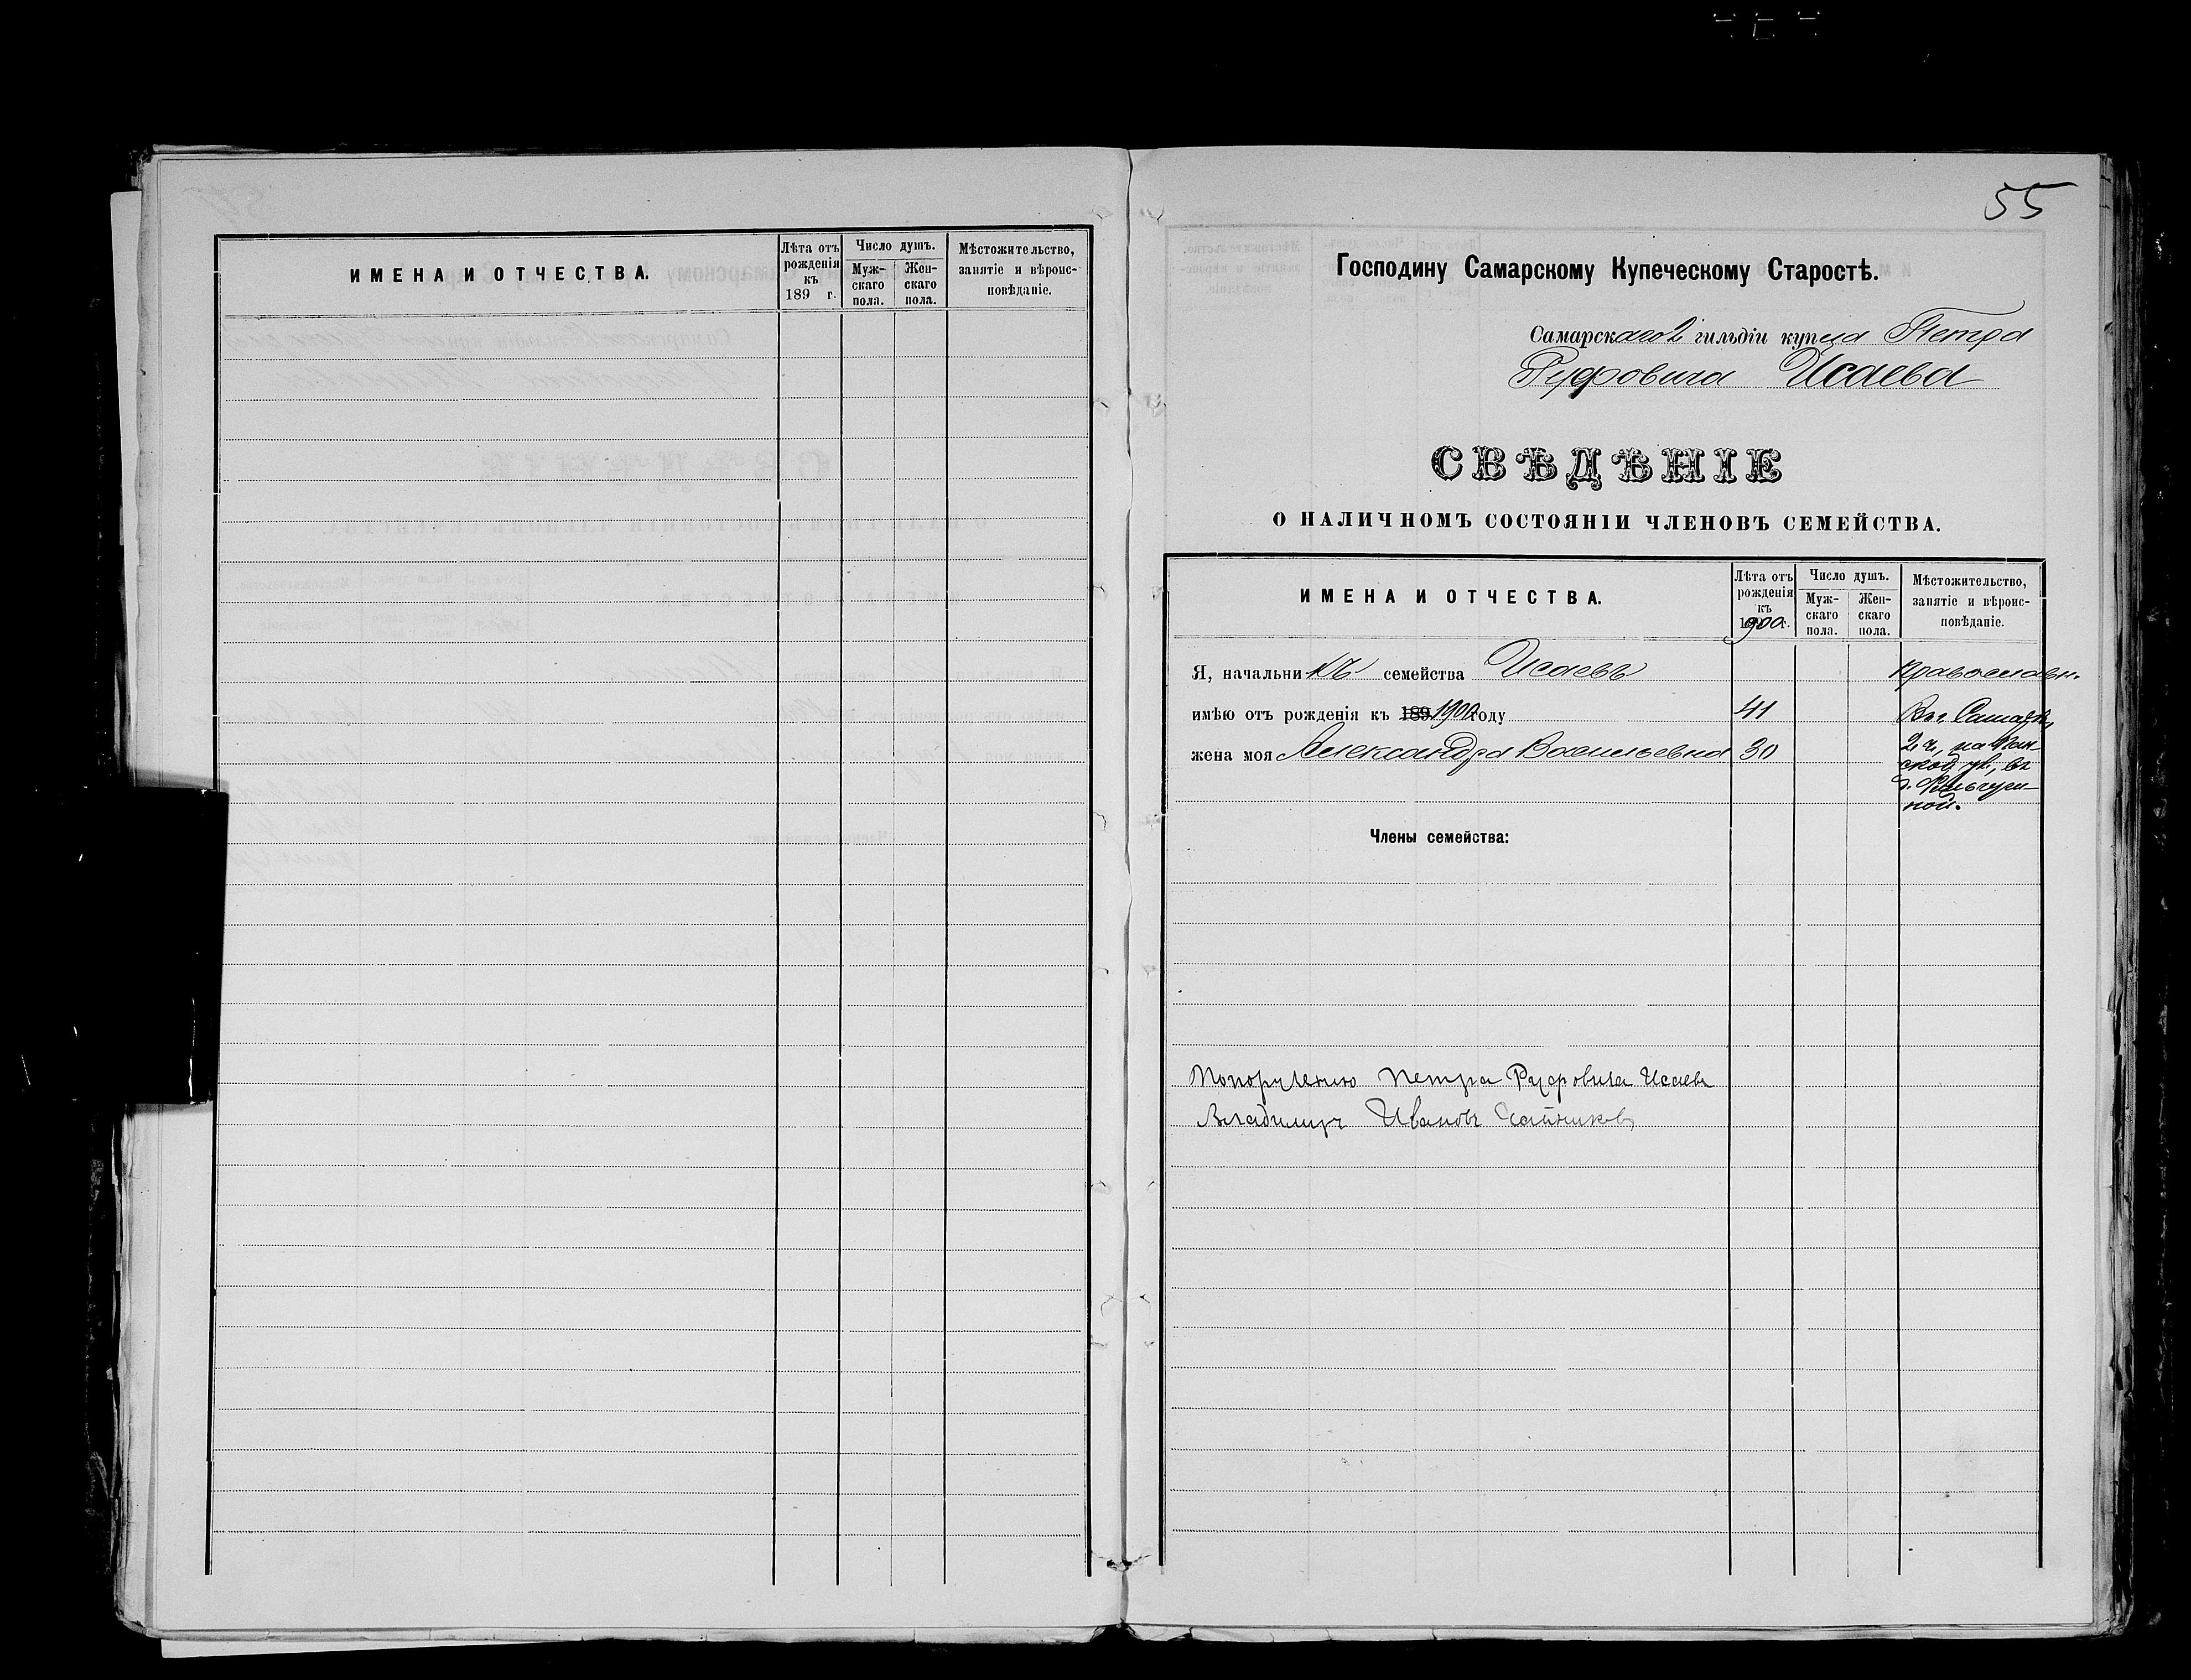 ИМЕНА И ОТЧЕСТВА.
Лѣта отъ рожденія къ 189 г.
Число душъ.
Муж-скаго пола.
Жен-скаго пола.
Мѣстожительство, занятіе и вѣроис-повѣданіе.
55
Господину Самарскому Купеческому Старостѣ.
Самарскаго 2 гильдіи купца Петра
Руфовича Исаева
СВѢДѢНІЕ
О НАЛИЧНОМЪ СОСТОЯНІИ ЧЛЕНОВЪ СЕМЕЙСТВА.
ИМЕНА И ОТЧЕСТВА.
Лѣта отъ рожденія къ 1900 г.
Число душъ.
Муж-скаго пола.
Жен-скаго пола.
Мѣстожительство, занятіе и вѣроис-повѣданіе.
Я, начальникъ семейства Исаевъ Православн.
имѣю отъ рожденія къ 189 1900 году 41 Въ г. Самарѣ,
жена моя Александра Васильевна 30 2 ч., на Пан-
ской ул., въ
д.
ной.
Члены семейства:
По порученію Петра Руфовича Исаева
Владимиръ Ивановъ Чайниковъ